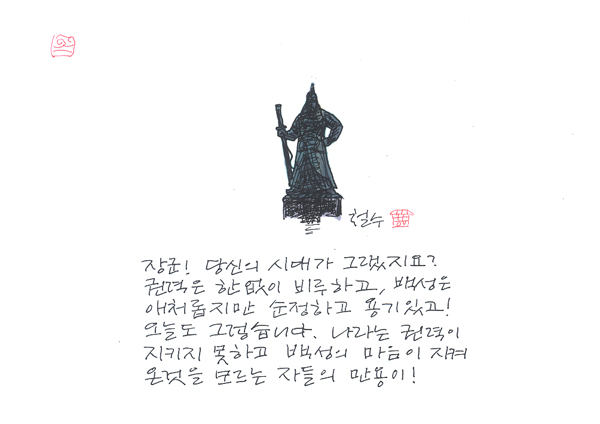 철수
장군! 당신의 시대가 그랬지요?
권력은 한없이 비루하고, 백성은
애처롭지만 순정하고 용기있고!
오늘도 그렇습니다. 나라는 권력이
지키지 못하고 백성의 마음이 지켜
온것을 모르는 자들의 만용이!